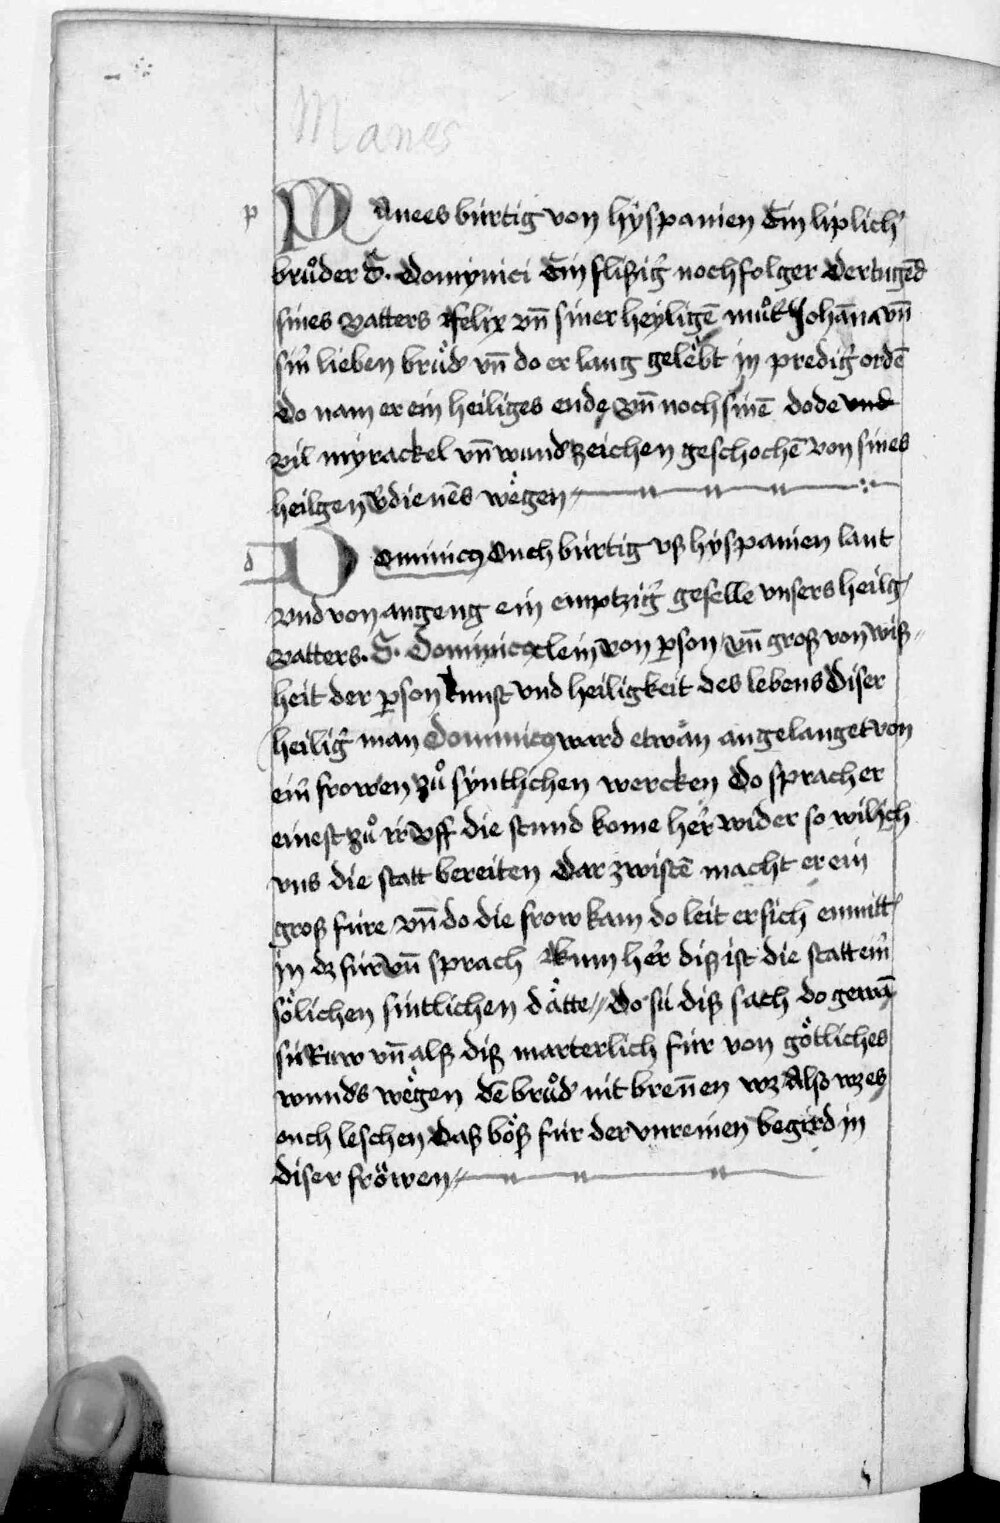 Manes
p
Manees búrtig von hÿspanien Ein liplich'
brůder S. Domÿnici Ein flißig' nochfolger der tugēd
sines vatters Felix vn̄ siner heÿligē můt' Johān̄a vn̄
sin' lieben brůd' vn̄ do er lang gelëbt in predig' ordē
do nam er ein heiliges ende vn̄ noch sinē dode vnd
vil mÿrackel vn̄ wund'zeichen geschochē von sines
heilgen v'dienēs wëgen
d
Dominicꝯ Ouch búrtig vß hÿspanien lant
vnd von angeng ein emptzig' geselle vnsers heilg'
vatters. S. Dominicꝯ clein von p̲son vn̄ groß von wiß
heit der p̲son kunst vnd heiligkeit des lebens Diser
heilig' man Dominicꝯ ward etwän angelanget von
ein' frowen zů sÿntlichen wercken Do sprach er
einest zů ir Vff die stund kome hër wider so wil ich
vns die statt bereiten Dar zwistē macht er ein
groß fúre vn̄ do die frow kam do leit er sich enmitt'
in dz fúr vn̄ sprach Kum hër diß ist die statt ein'
sölichen sintlichen dätte Do sú diß sach do gewā
sú Ruw vn̄ alß diß marterlich fúr von götliches
wund's wëgen dē brůd' nit bren̄en wz Also wz es
ouch leschen Daß böß fúr der vnreinen begird in
diser fröwen